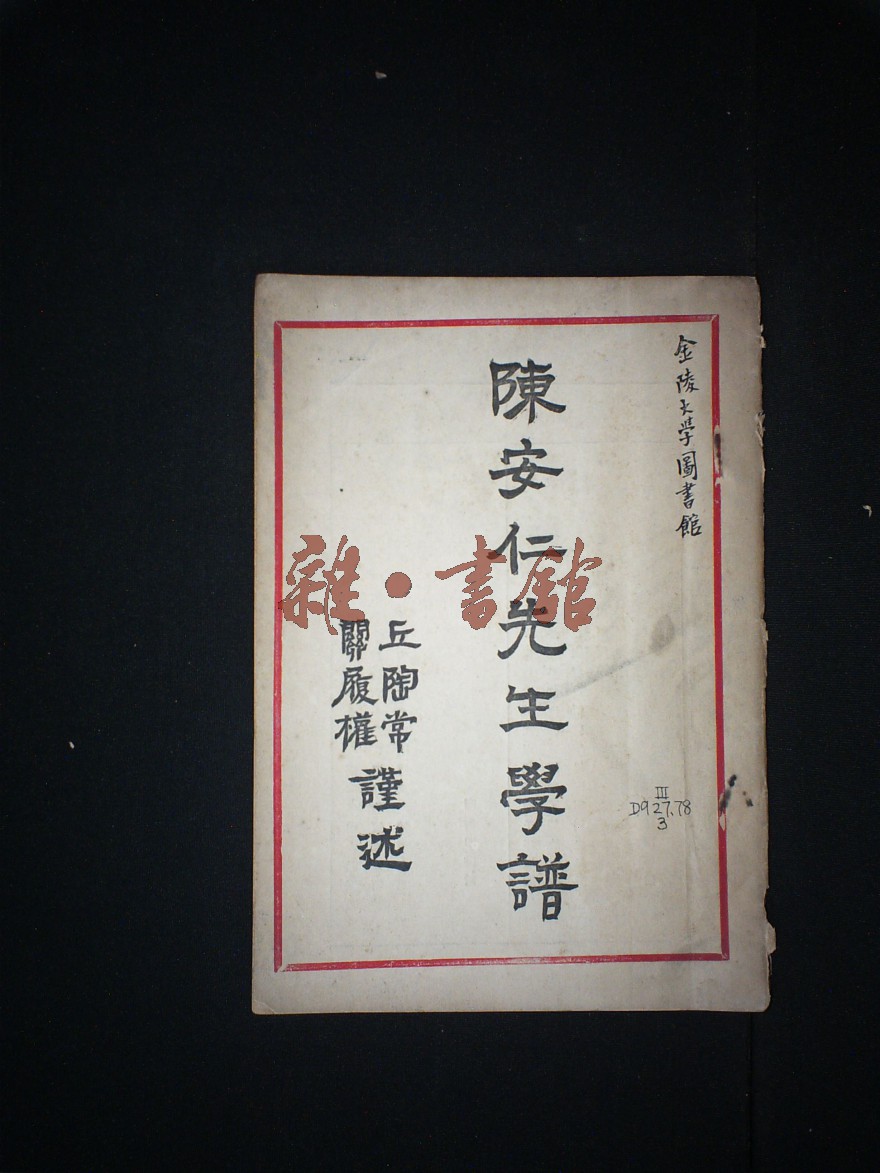 金陵大學圖書館
陳安仁先生學譜
丘陶常
關履權
謹述
III
D927.78
3
雜·書館